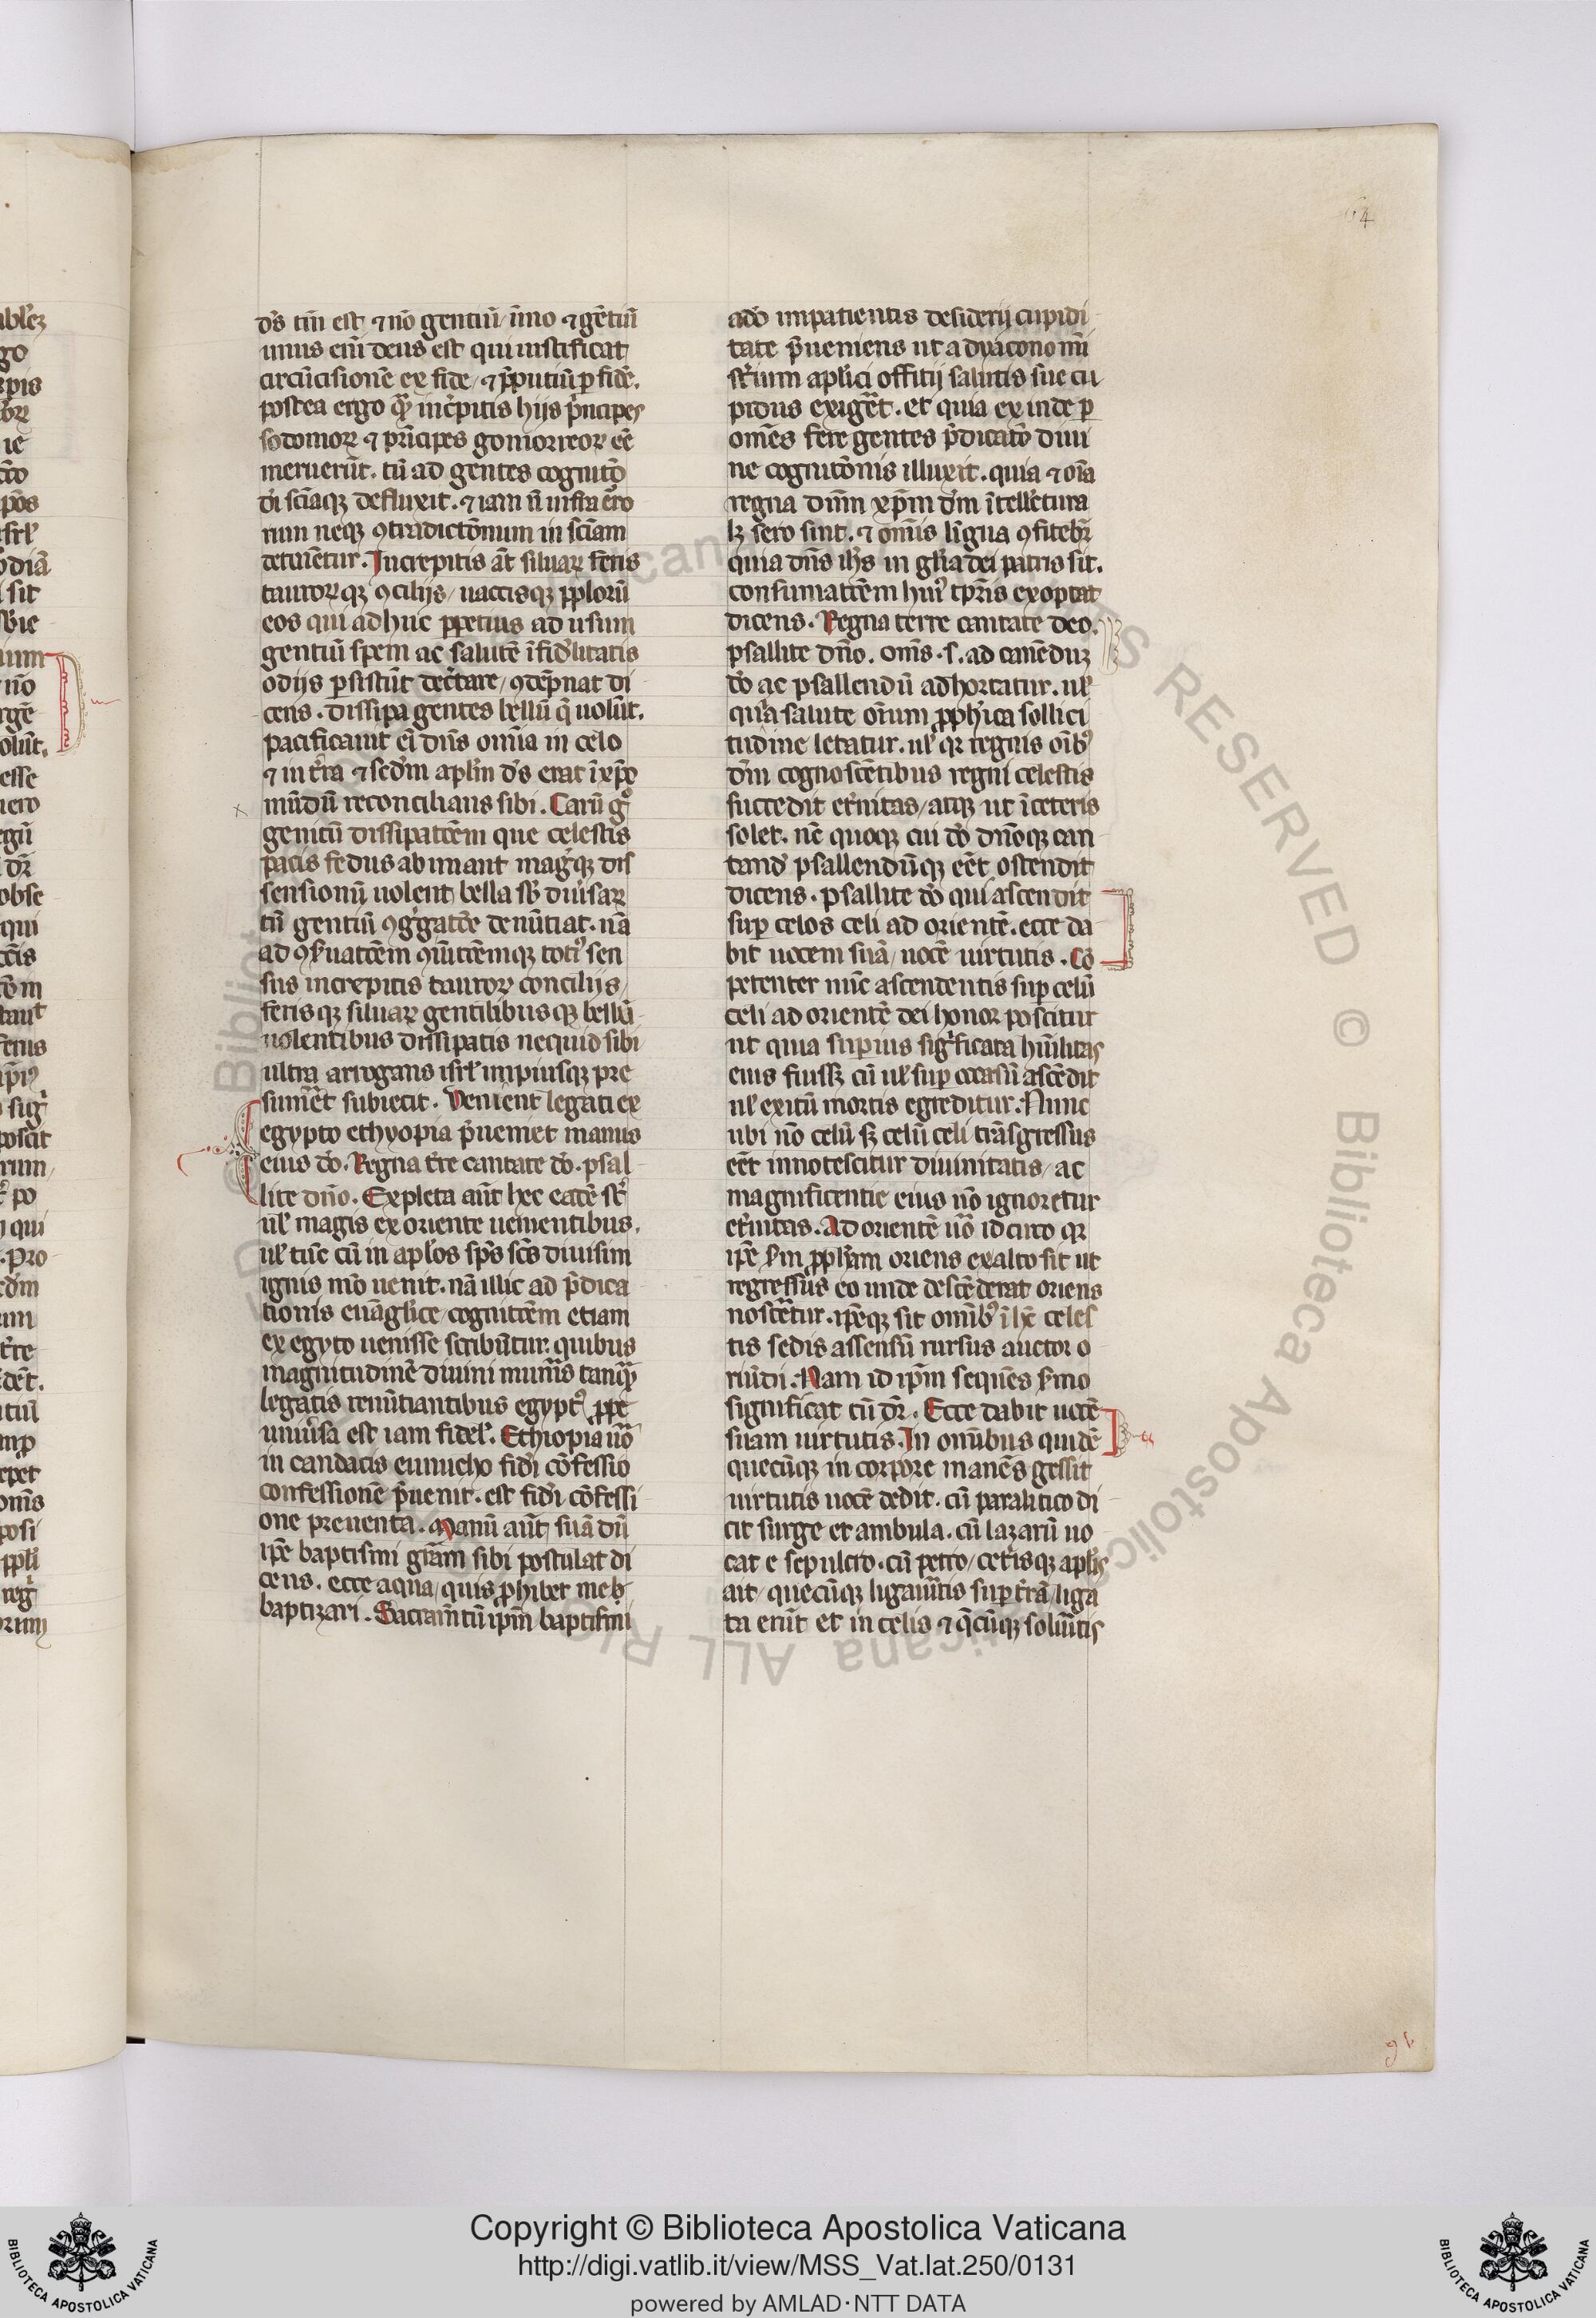 64
d̄s tm̄ est ⁊ nō gentiū / īmo ⁊ gētiū
unus em̄ deus est qui iustificat
circūcisionē ex fide / ⁊ p̄putiū ꝑ fidē.
postea ergo qm̄ inc̄pitis hijs p̄ncipes
sodomoꝝ ⁊ pricipes gomorreoꝝ eē
meruerūt. tū ad gentes cognitō
dī sciāqꝫ defluxit. ⁊ iam ñ infra eꝛo
rum neqꝫ ꝯtradictōnum in sciam
detinētur. Increpitis aūt siluaꝝ feris
tauroꝝqꝫ ꝯcilijs / uaccisqꝫ pp̄loꝝū
eos qui adhuc ꝑpetius ad usum
gentiū spem ac salutē īfid̄litatis
odijs ꝑsistūt dectare / ꝯdēpnat di
cens. dissipa gentes bellū q̄ uolūt.
pacificauit em̄ dn̄s omīa in celo
⁊ in t̄ra ⁊ sed̄m apl̄m d̄s erat ī xp̄o
mūdū reconcilians sibi. Carū gͦ
gentiū dissipatōem que celestis
pacis fedus abinant mag̓qꝫ dis
sensionū uolent bella sb̄ diu̓saꝝ
tū gentiū ꝯg̓gatōe denūtiat. nā
ad ꝯẜuatōem ꝯiūctōemqꝫ totiꝰ sen
sus increpitis tauroꝝ concilijs /
ferisqꝫ siluaꝝ gentilibusqꝫ bellū
uolentibus dissipatis nequid sibi
ultra arrogans isrl̓ impiusqꝫ pre
sumēt subiecit. Venient legati ex
egypto ethyopia p̄ueniet manus
eius dō. Regna t̄re cantate dō. psal
lite dn̄o. Expleta aūt hec eadē st̄
ul̓ magis ex oriente uenientibus.
ul̓ tūc cū in apl̓os sp̄s sc̄s diuisim
ignis mō uenit. nā illic ad p̄dica
tionis euāglīce / cognitōem etiam
ex egyto uenisse scribūtur: quibus
magnitudinē diuini mun̄is tanqͣꝫ
legatis renūtiantibus egyptꝰ ꝓpe
uniu̓sa est iam fidel̓. Ethiopia uō
in candacis eunucho fidī cōfessio
confessionē p̄uenit. est fidī cōfessi
one preuenta. Manū aūt suā dū
ip̄e baptismi gr̄am sibi postulat di
cens. ecce aqua / quis ꝓhibet me b
baptizari. Sacram̄tū ip̄m baptismi
adō impatientis desiderij cupidi
tate p̄ueniens ut a dyacono mī
st̓ium apl̓ici offitij salutis sue cu
pidus exiḡet. et quia exinde ꝑ
omēs fere gentes p̄dicatō diui
ne cognitōnis illuxit. quia ⁊ oīa
regna dūm xp̄m dm̄ ītellectura
lꝫ sero sint. ⁊ omīs līgua ꝯfitebr̄
quia dn̄s ih̄s in gl̓ia dei patris sit.
consumatōem huiꝰ tp̄ris exoptat
dicens. Regna terre cantate deo.
psallite dn̄o. om̄s .s. ad canēduꝫ
dō ac psallendū adhortatur. ul̓
quia salute om̄um ꝓph̓ica sollici
tudine letatur. ul̓ qꝛ regnis oībꝰ
dm̄ cognoscētibus regni celestis
succedit et̓nitas / atqꝫ ut ī ceteris
solet. nē quoqꝫ cui dō dn̄oqꝫ can
tand̓ psallendūqꝫ eēt ostendit
dicens. psallite dō qui ascendit
suꝑ celos celi ad orientē. ecce da
bit uocem suā / uocē uirtutis. Cō
petenter nūc ascendentis suꝑ celū
celi ad orientē dei honor poscitur
ut quia suꝑius sig̓ficata hūilitas
eius fuissꝫ cū ul̓ suꝑ occasū ascēdit
ul̓ exitū mortis egreditur. Nunc
ubi nō celū sꝫ celū celi trāsgressus
eēt innotescitur diuinitatis / ac
magnificentie eius nō ignoretur
et̓nitas. Ad orientē uō idcirco qꝛ
ip̄e ẜm ꝓph̓iam oriens ex alto sit ut
regressus eo unde descēderat oriens
noscētur. ip̄eqꝫ sit omībꝰ ī lx̄ celes
tis sedis assensū rursus auctor o
riūdi. Nam id ip̄m sequēs ẜmo
significat cū dr̄. Ecce dabit uocē
suam uirtutis. In omībus quidē
quecūqꝫ in corpore manēs gessit
uirtutis uocē dedit. cū paralitico di
cit surge et ambula. cū lazarū uo
cat e sepulcro. cū petro / cet̓isqꝫ apl̓is
ait / quecūqꝫ ligau̓itis suꝑ t̄rā / liga
ta erūt et in celis ⁊ q̄cūqꝫ solu̓itis
Copyright © Biblioteca Apostolica Vaticana
http://digi.vatlib.it/view/MSS_Vat.lat.250/0131
powered by AMLAD·NTT DATA